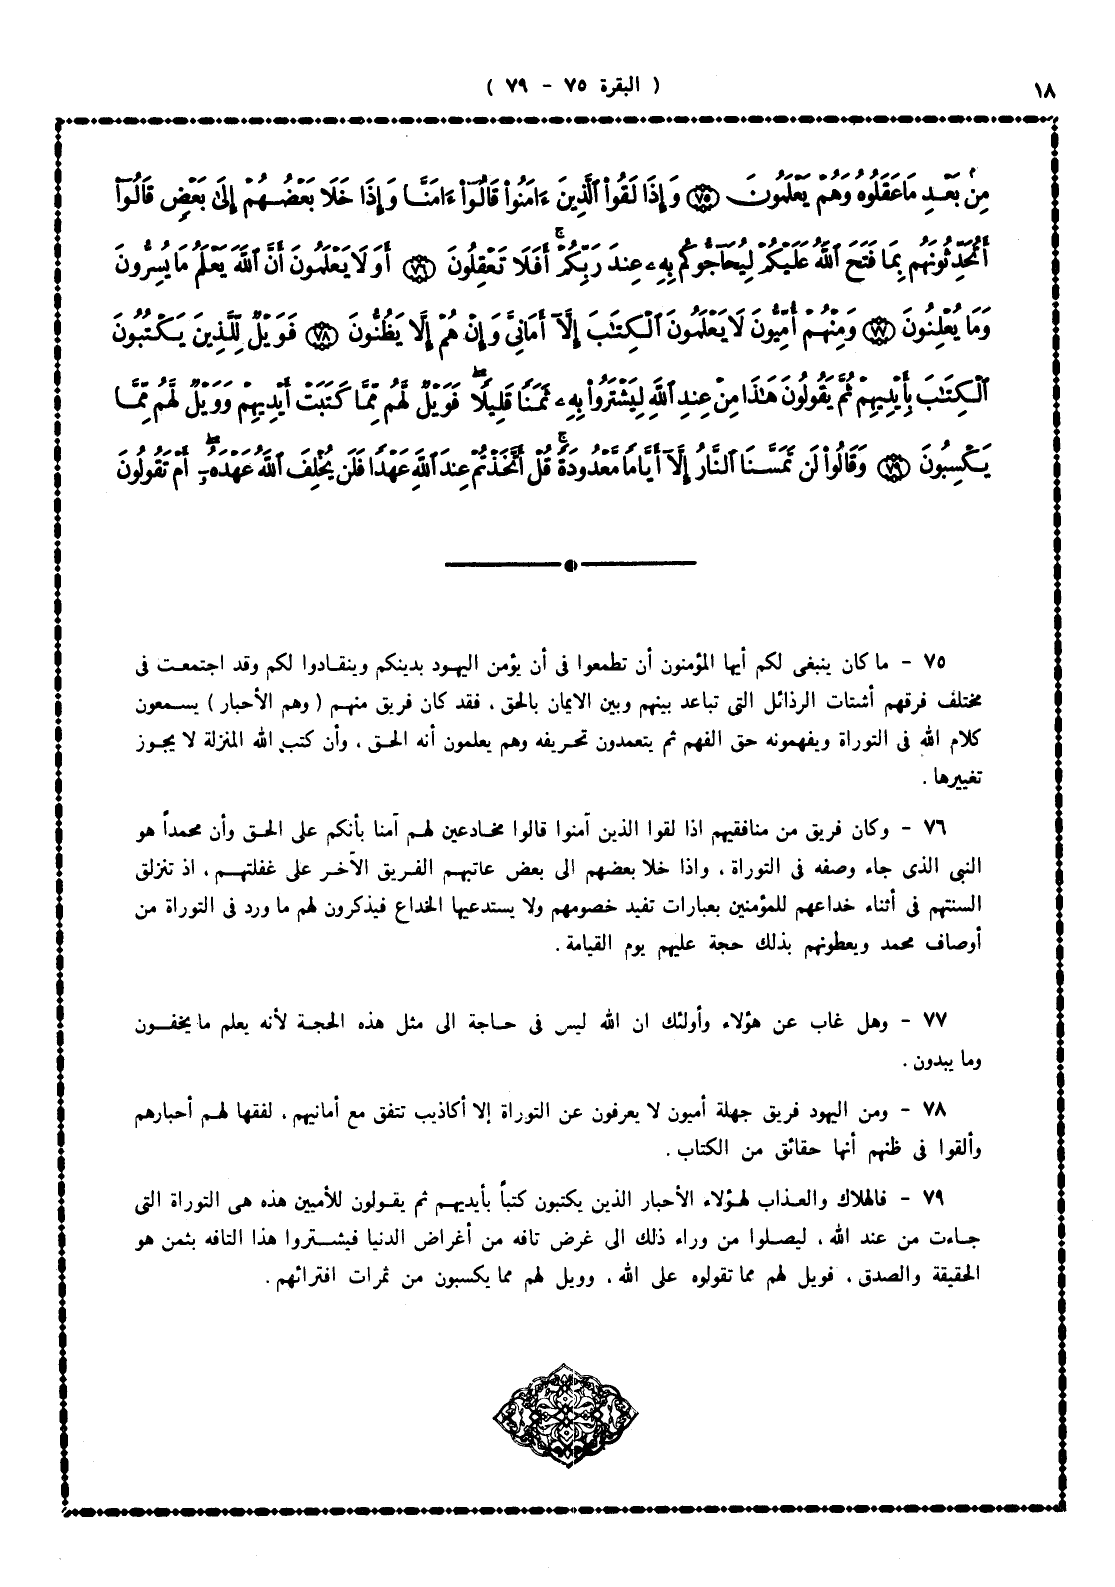 ١٨
( البقرة ٧٥ – ٧٩ )
مِنۢ بَعْدِ مَا عَقَلُوهُ وَهُمْ يَعْلَمُونَ ﴿٧٥﴾ وَإِذَا لَقُوا۟ ٱلَّذِينَ ءَامَنُوا۟ قَالُوٓا۟ ءَامَنَّا وَإِذَا خَلَا بَعْضُهُمْ إِلَىٰ بَعْضٍ قَالُوٓا۟
أَتُحَدِّثُونَهُم بِمَا فَتَحَ ٱللَّهُ عَلَيْكُمْ لِيُحَآجُّوكُم بِهِۦ عِندَ رَبِّكُمْ ۚ أَفَلَا تَعْقِلُونَ ﴿٧٦﴾ أَوَلَا يَعْلَمُونَ أَنَّ ٱللَّهَ يَعْلَمُ مَا يُسِرُّونَ
وَمَا يُعْلِنُونَ ﴿٧٧﴾ وَمِنْهُمْ أُمِّيُّونَ لَا يَعْلَمُونَ ٱلْكِتَٰبَ إِلَّآ أَمَانِىَّ وَإِنْ هُمْ إِلَّا يَظُنُّونَ ﴿٧٨﴾ فَوَيْلٌ لِّلَّذِينَ يَكْتُبُونَ
ٱلْكِتَٰبَ بِأَيْدِيهِمْ ثُمَّ يَقُولُونَ هَٰذَا مِنْ عِندِ ٱللَّهِ لِيَشْتَرُوا۟ بِهِۦ ثَمَنًا قَلِيلًا ۖ فَوَيْلٌ لَّهُم مِّمَّا كَتَبَتْ أَيْدِيهِمْ وَوَيْلٌ لَّهُم مِّمَّا
يَكْسِبُونَ ﴿٧٩﴾ وَقَالُوا۟ لَن تَمَسَّنَا ٱلنَّارُ إِلَّآ أَيَّامًا مَّعْدُودَةً ۚ قُلْ أَتَّخَذْتُمْ عِندَ ٱللَّهِ عَهْدًا فَلَن يُخْلِفَ ٱللَّهُ عَهْدَهُۥٓ ۖ أَمْ تَقُولُونَ
٧٥ – ما كان ينبغى لكم أيها المؤمنون أن تطمعوا فى أن يؤمن اليهود بدينكم وينقادوا لكم وقد اجتمعت فى
مختلف فرقهم أشتات الرذائل التى تباعد بينهم وبين الايمان بالحق ، فقد كان فريق منهم ( وهم الأحبار ) يسمعون
كلام الله فى التوراة ويفهمونه حق الفهم ثم يتعمدون تحريفه وهم يعلمون أنه الحق ، وأن كتب الله المنزلة لا يجوز
تغييرها .
٧٦ – وكان فريق من منافقيهم اذا لقوا الذين آمنوا قالوا مخادعين لهم آمنا بأنكم على الحق وأن محمداً هو
النبى الذى جاء وصفه فى التوراة ، واذا خلا بعضهم الى بعض عاتبهم الفريق الآخر على غفلتهم ، اذ تنزلق
السنتهم فى أثناء خداعهم للمؤمنين بعبارات تفيد خصومهم ولا يستدعيها الخداع فيذكرون لهم ما ورد فى التوراة من
أوصاف محمد ويعطونهم بذلك حجة عليهم يوم القيامة .
٧٧ – وهل غاب عن هؤلاء وأولئك ان الله ليس فى حاجة الى مثل هذه الحجة لأنه يعلم ما يخفون
وما يبدون .
٧٨ – ومن اليهود فريق جهلة أميون لا يعرفون عن التوراة إلا أكاذيب تتفق مع أمانيهم ، لفقها لهم أحبارهم
وألقوا فى ظنهم أنها حقائق من الكتاب .
٧٩ – فالهلاك والعذاب لهؤلاء الأحبار الذين يكتبون كتباً بأيديهم ثم يقولون للأميين هذه هى التوراة التى
جاءت من عند الله ، ليصلوا من وراء ذلك الى غرض تافه من أغراض الدنيا فيشتروا هذا التافه بثمن هو
الحقيقة والصدق ، فويل لهم مما تقولوه على الله ، وويل لهم مما يكسبون من ثمرات افترائهم .